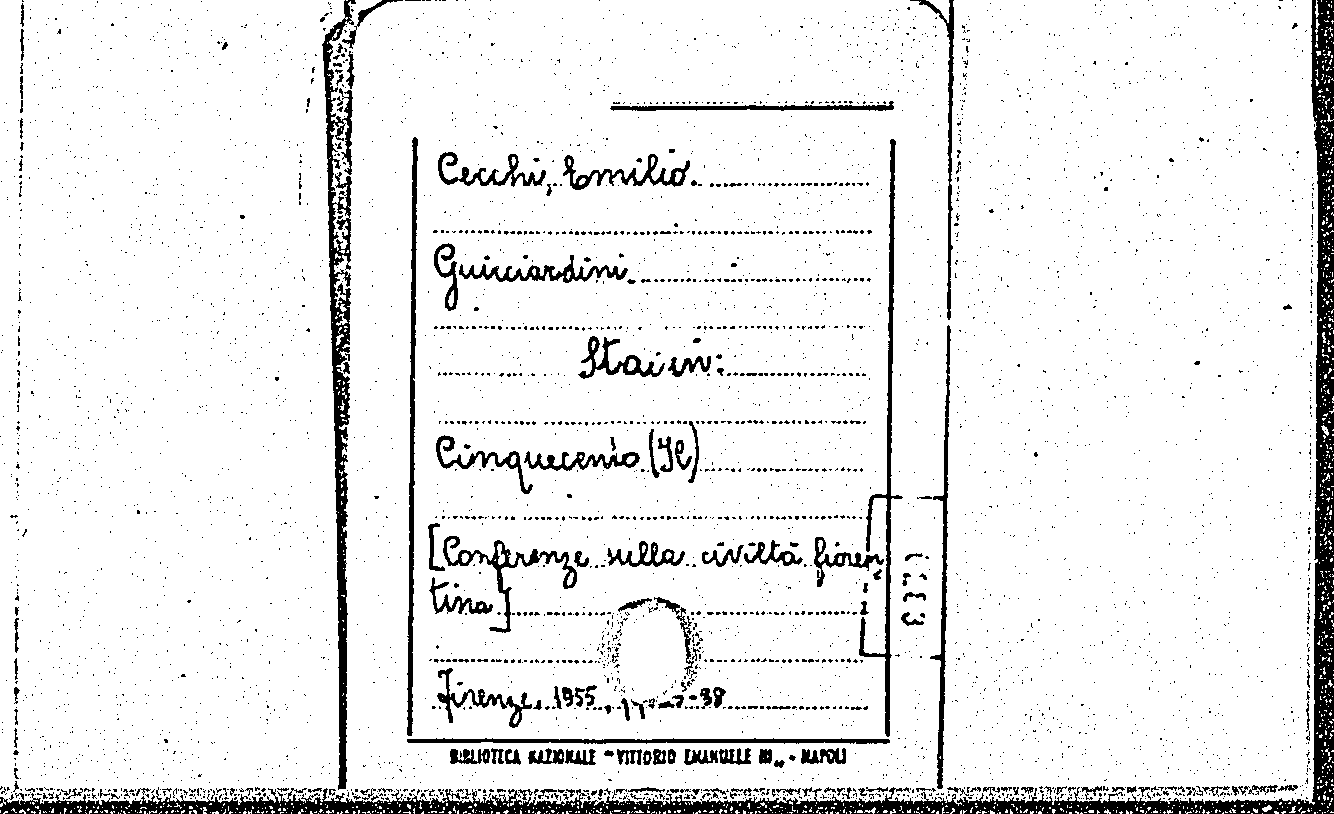 Cecchi, Emilio.
Guicciardini.
Sta in:
Cinquecento (Il)
[Conferenze sulla civiltà fioren-
tina]
Firenze, 1955,
BIBLIOTECA NAZIONALE "VITTORIO EMANUELE III" - NAPOLI